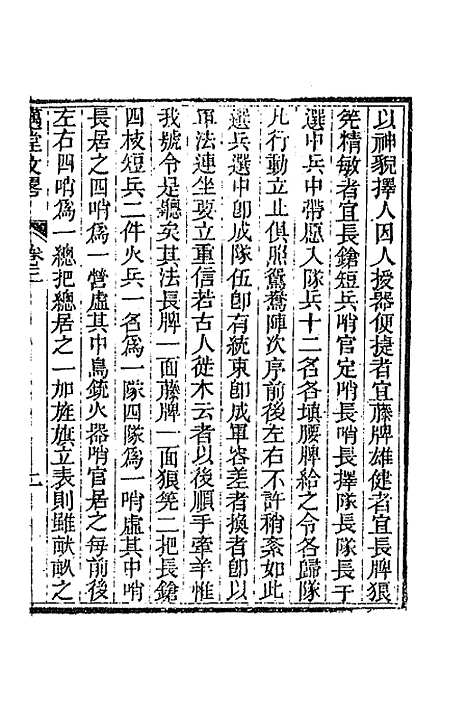 以神貌擇人因人授器便捷者宜藤牌雄健者宜長牌狼
筅精敏者宜長鎗短兵哨官定哨長哨長擇隊長隊長于
選中兵中帶愿入隊兵十二名各填腰牌給之令各歸隊
凡行動立止俱照鴛鴦陣次序前後左右不許稍紊如此
選兵選中卽成隊伍卽有統束卽成軍容差者換者卽以
軍法連坐要立重信若古人徙木云者以後順手牽羊惟
我號令是聽矣其法長牌一面藤牌一面狼筅二把長鎗
四枝短兵二件火兵一名爲一隊四隊爲一哨虛其中哨
長居之四哨爲一營虛其中鳥銃火器哨官居之每前後
左右四哨爲一總把總居之一加旌旗立表則雖畎畝之
卷三